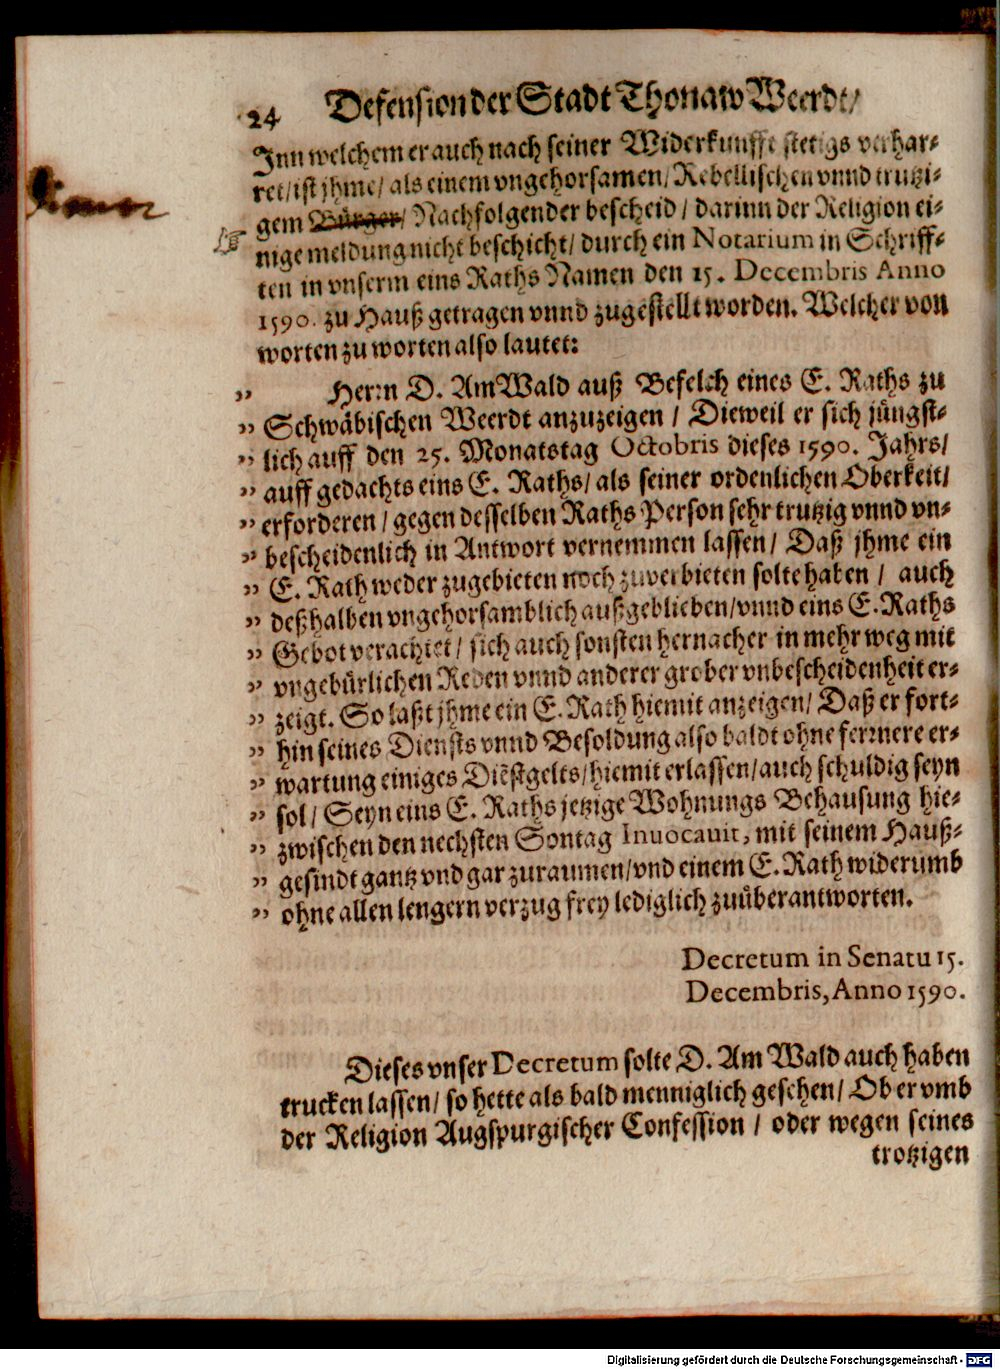 24 Defension der Stadt Thonaw Weerdt/
Inn welchem er auch nach seiner Widerkunfft stetigs verhar-
ret/ ist jhme/ als einem vngehorsamen/ Rebellischen vnnd trutzi-
gem Bürger/ Nachfolgender bescheid / darinn der Religion ei-
nige meldung nicht beschicht/ durch ein Notarium in Schriff-
ten in vnserm eins Raths Namen den 15. Decembris Anno
1590. zu Hauß getragen vnnd zugestellt worden. Welcher von
worten zu worten also lautet:
„ Herrn D. Am Wald auß Befelch eines E. Raths zu
„ Schwäbischen Weerdt anzuzeigen / Dieweil er sich jüngst-
„ lich auff den 25. Monatstag Octobris dieses 1590. Jahrs/
„ auff gedachts eins E. Raths/ als seiner ordenlichen Oberkeit/
„ erforderen / gegen desselben Raths Person sehr trutzig vnnd vn-
„ bescheidenlich in Antwort vernemmen lassen/ Daß jhme ein
„ E. Rath weder zugebieten noch zuverbieten solte haben / auch
„ deßhalben vngehorsamblich außgeblieben/ vnnd eins E. Raths
„ Gebot verachtet / sich auch sonsten hernacher in mehr weg mit
„ vngebürlichen Reden vnnd anderer grober vnbescheidenheit er-
„ zeigt. So laßt jhme ein E. Rath hiemit anzeigen/ Daß er fort-
„ hin seines Diensts vnnd Besoldung also baldt ohne fernere er-
„ wartung einiges Diẽstgelts/ hiemit erlassen/ auch schuldig seyn
„ sol/ Seyn eins E. Raths jetzige Wohnungs Behausung hie-
„ zwischen den nechsten Sontag Inuocauit, mit seinem Hauß-
„ gesindt gantz vnd gar zuraumen/ vnd einem E. Rath widerumb
„ ohne allen lengern verzug frey lediglich zuüberantworten.
Decretum in Senatu 15.
Decembris, Anno 1590.
Dieses vnser Decretum solte D. Am Wald auch haben
trucken lassen/ so hette als bald menniglich gesehen/ Ob er vmb
der Religion Augspurgischer Confession / oder wegen seines
trotzigen
Digitalisierung gefördert durch die Deutsche Forschungsgemeinschaft - DFG